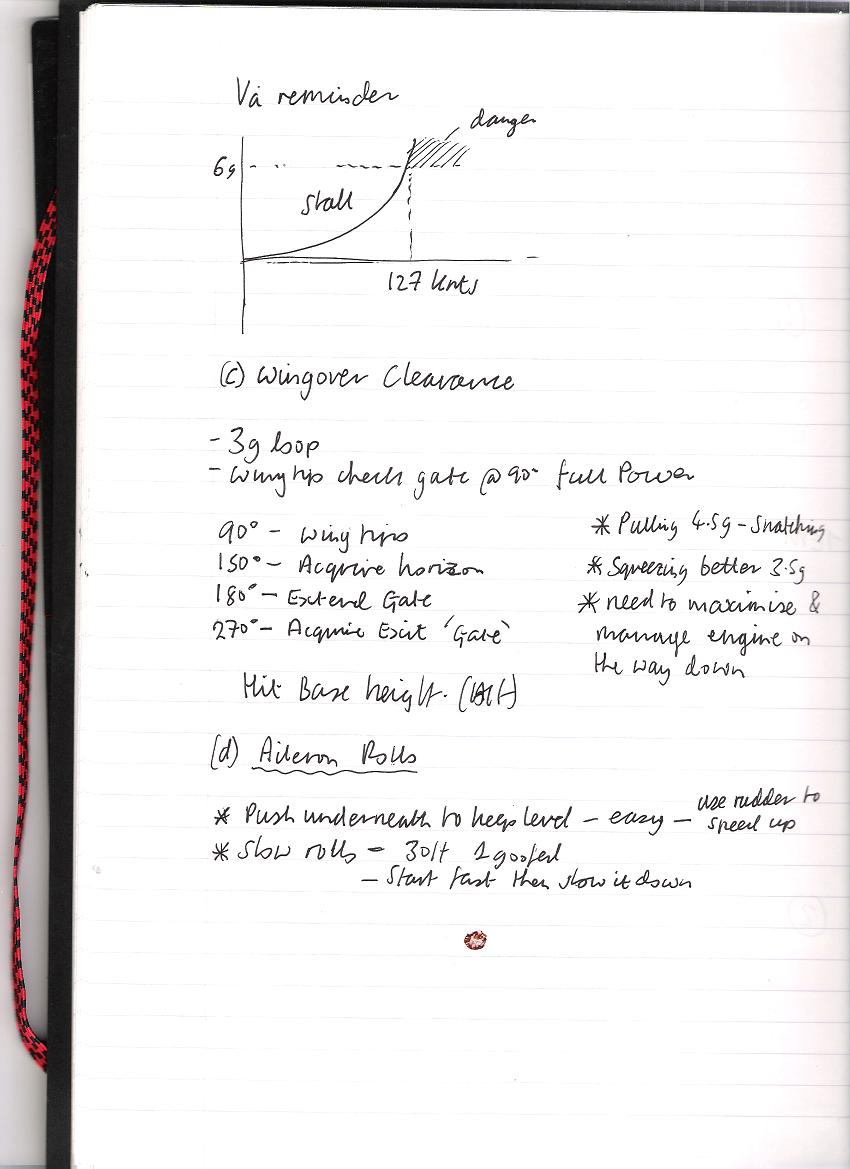 Va reminder
danger
6g
Stall
127 knts
(c) Wingover Clearance
- 3g loop
- Wingtip check gate @ 90° full Power
90° - Wing tips
150° - Acquire horizon
180° - Extend Gate
270° - Acquire Exit 'Gate'
* Pulling 4.5g - Snatching
* Squeezing better 3.5g
* need to maximise &
manage engine on
the way down
Hit Base height.
(d) Aileron Rolls
* Push underneath to keep level - easy - use rudder to
speed up
* Slow rolls - 3 off 1 goofed
- Start fast then slow it down